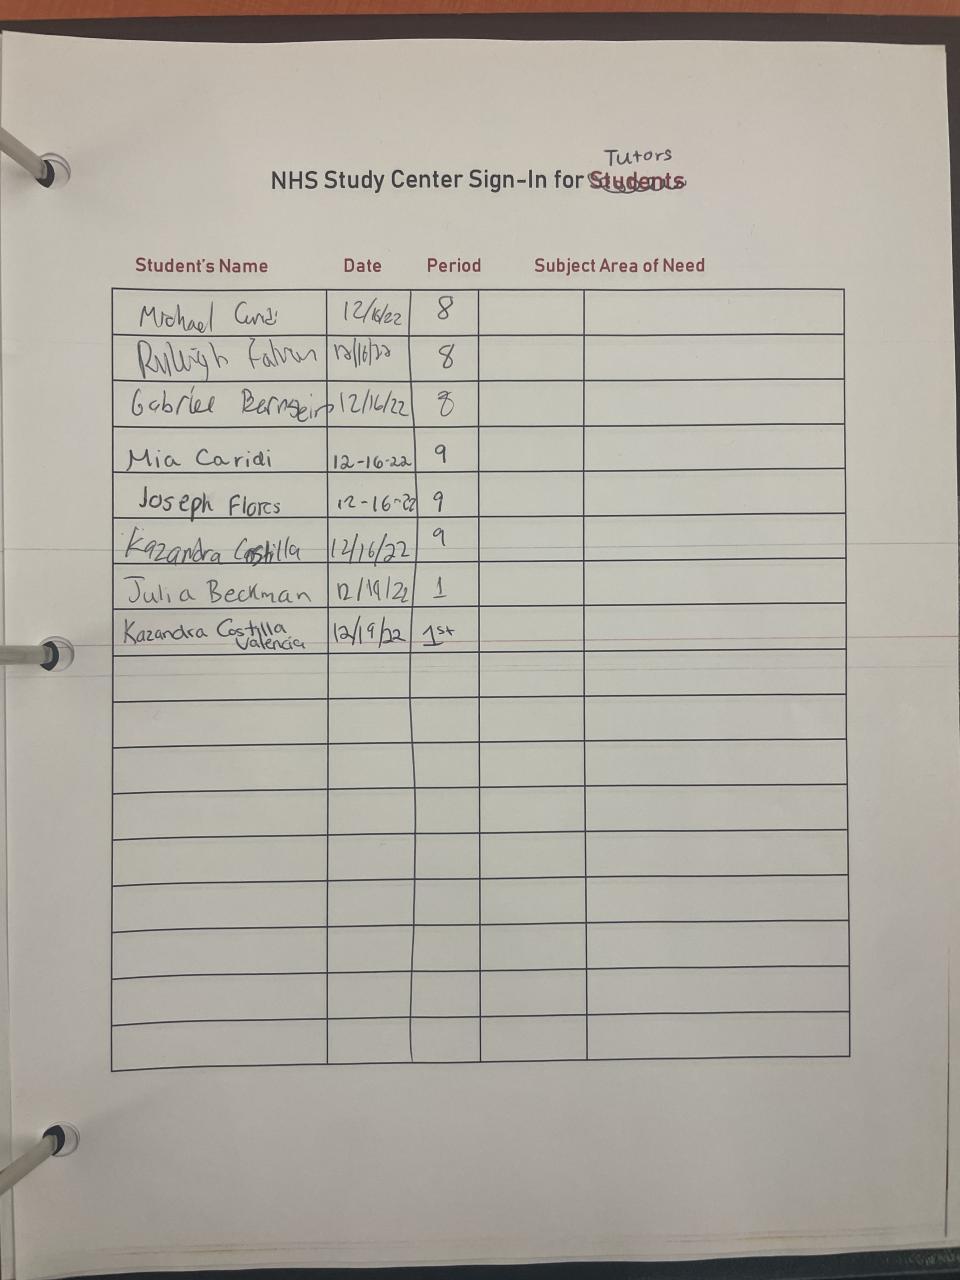 Tutors
NHS Study Center Sign-In for Students
Student's Name Date Period Subject Area of Need
Michael 12/16/22 8
Ryleigh 12/16/22 8
Gabriel Bernstein 12/16/22 8
Mia Caridi 12-16-22 9
Joseph Flores 12-16-22 9
Kazandra Costilla 12/16/22 9
Julia Beckman 12/19/22 1
Kazandra Costilla 12/19/22 1st
Valencia